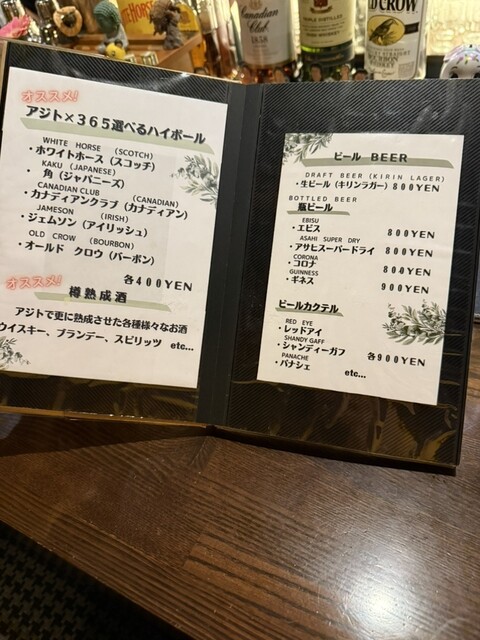 HORSE
Canadian
Club
1858
TRIPLE DISTILLED
OLD CROW
BOURBON
オススメ!
アジト×365選べるハイボール
WHITE HORSE (SCOTCH)
・ホワイトホース (スコッチ)
KAKU (JAPANESE)
・角 (ジャパニーズ)
CANADIAN CLUB (CANADIAN)
・カナディアンクラブ (カナディアン)
JAMESON (IRISH)
・ジェムソン (アイリッシュ)
OLD CROW (BOURBON)
・オールド クロウ (バーボン)
各400YEN
オススメ!
樽熟成酒
アジトで更に熟成させた各種様々なお酒
ウイスキー、ブランデー、スピリッツ etc...
ビール BEER
DRAFT BEER (KIRIN LAGER)
・生ビール (キリンラガー) 800YEN
BOTTLED BEER
瓶ビール
EBISU
・エビス 800YEN
ASAHI SUPER DRY
・アサヒスーパードライ 800YEN
CORONA
・コロナ 800YEN
GUINNESS
・ギネス 900YEN
ビールカクテル
RED EYE
・レッドアイ
SHANDY GAFF
・シャンディーガフ 各900YEN
PANACHE
・パナシェ
etc...